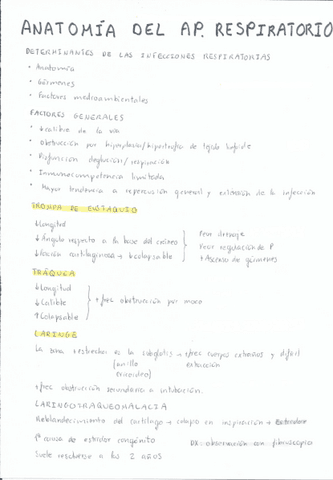 ANATOMÍA DEL AP. RESPIRATORIO
DETERMINANTES DE LAS INFECCIONES RESPIRATORIAS
· Anatomía
· Gérmenes
· Factores medioambientales
FACTORES GENERALES
· ↓calibre de la vía
· Obstrucción por hiperplasia/hipertrofia de tejido linfoide
· Disfunción deglución/respiración
· Inmunocompetencia limitada
· Mayor tendencia a repercusión general y extensión de la infección
TROMPA DE EUSTAQUIO
↓Longitud
↓Ángulo respecto a la base del cráneo
↓Porción cartilaginosa → ↑colapsable
Peor drenaje
Peor regulación de P
↑Ascenso de gérmenes
TRÁQUEA
↓Longitud
↓Calibre
↑Colapsable
+frec obstrucción por moco
LARINGE
La zona + estrecha es la subglotis → +frec cuerpos extraños y difícil
(anillo extracción
cricoideo)
+frec obstrucción secundaria a intubación.
LARINGOTRAQUEOMALACIA
Reblandecimiento del cartílago → colapso en inspiración →
1ª causa de estridor congénito DX: observación con fibroscopio
Suele resolverse a los 2 años